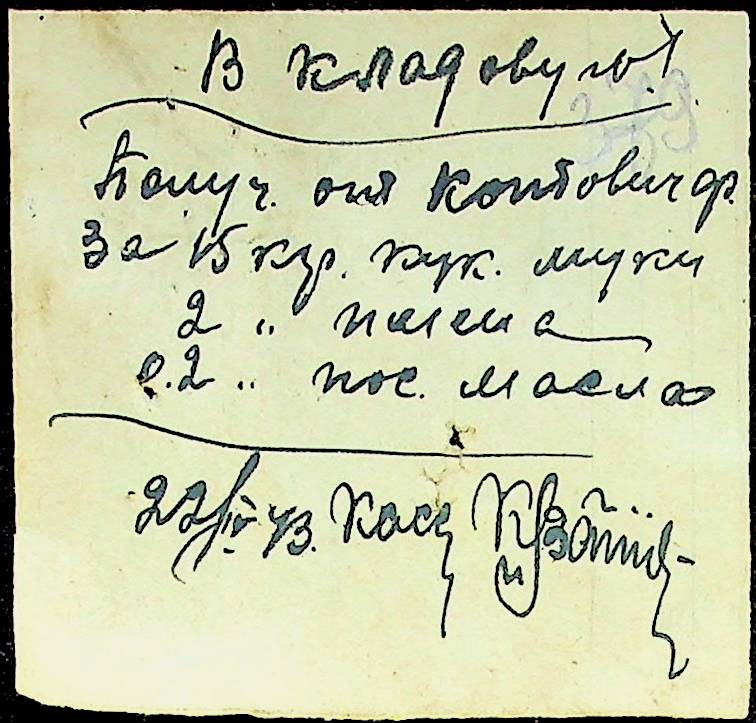 В кладовую!
379
Получ. от Контович Ф.
За 15 кгр. кук. муки
2 " пшена
0.2 " пос. масла
22/IV 43. Касс